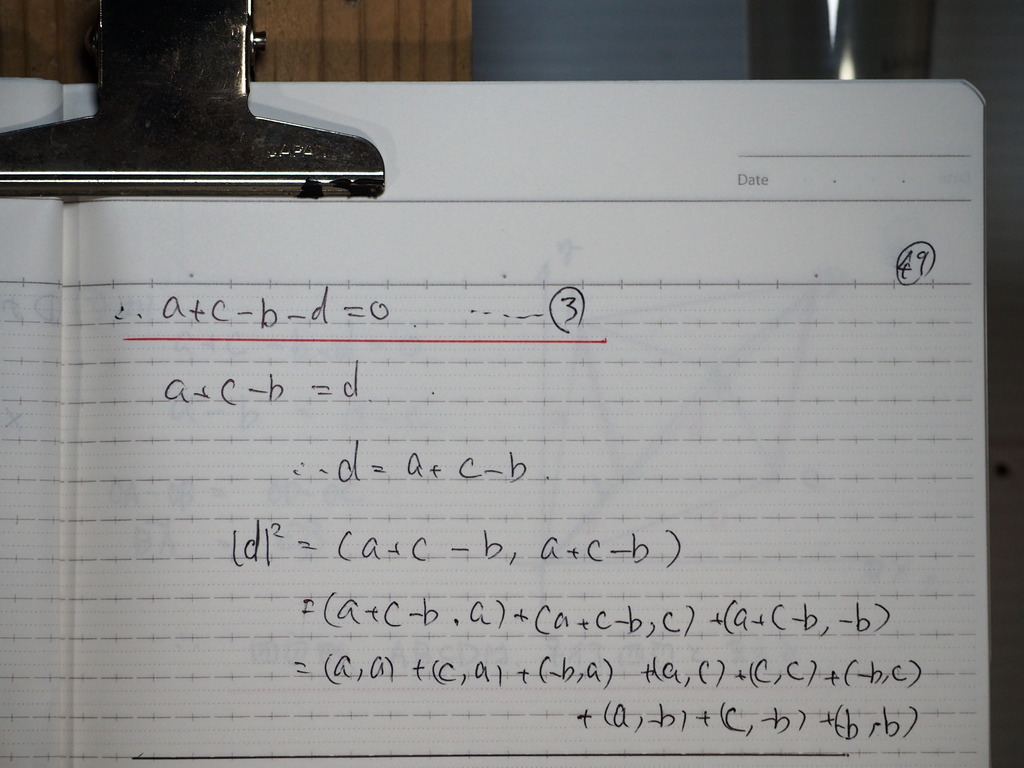 JAPAN
Date
49
∴ a+c-b-d=0. ……③
a+c-b = d.
∴ d = a+c-b.
|d|² = (a+c-b, a+c-b)
=(a+c-b, a)+(a+c-b, c)+(a+c-b, -b)
=(a,a)+(c,a)+(-b,a)+(a,c)+(c,c)+(-b,c)
+(a,-b)+(c,-b)+(b,b)